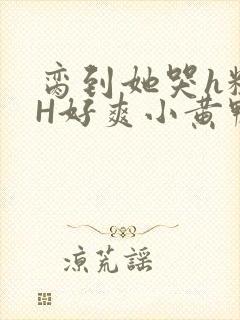 脔到她哭h粗
H好爽小黄鸭
凉荒謡